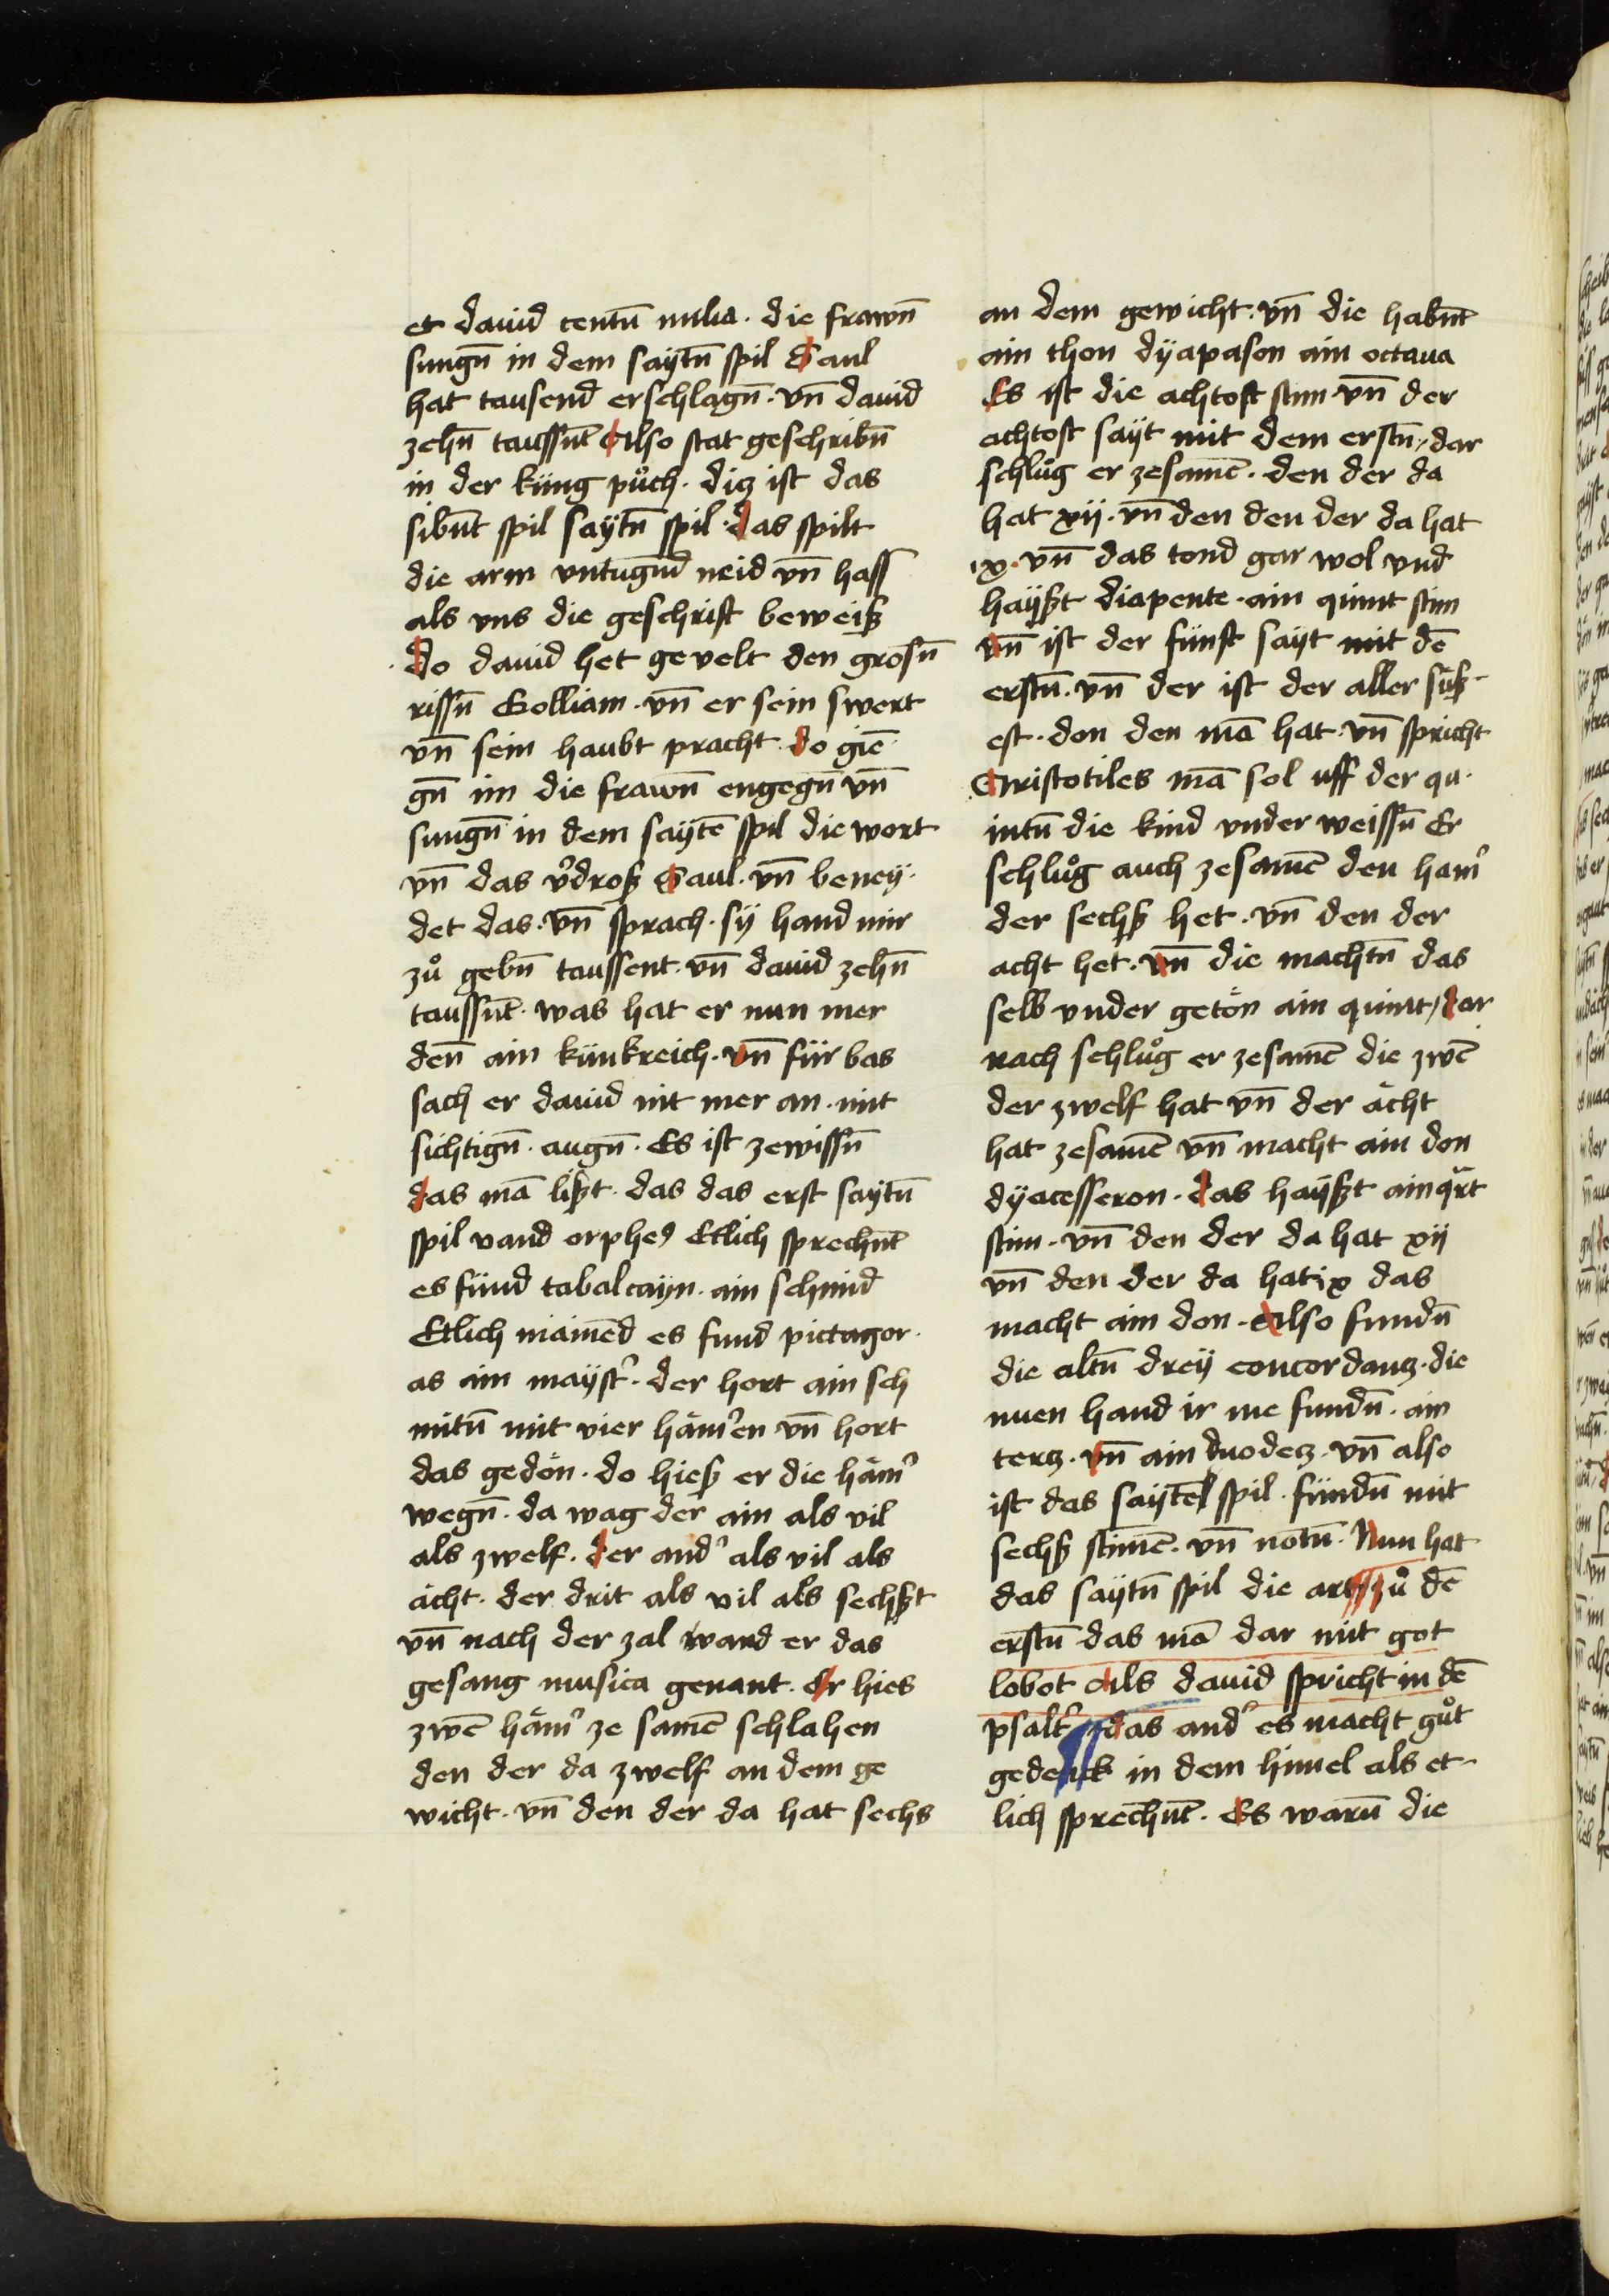 et dauid centū milia · die frawn̄
sungn̄ in dem saytn̄ spil Saul
hat tausend erschlagn̄ · vn̄ dauid
zehn̄ taussn̄t Also stat geschribn̄
in der küng půch · diz ist das
sibn̄t spil saytn̄ spil · das spilt
die arm vntugn̄d neid vn̄ hass
als vns die geschrift beweiß
do dauid het gevelt den grosn̄
rissn̄ Golliam · vn̄ er sein swert
vn̄ sein haubt pracht · do giē
gn̄ im die frawn̄ engegn̄ vn̄
sungn̄ in dem saytē spil die wort
vn̄ das v̾droß Saul · vn̄ beney·
det das · vn̄ sprach · sy hand mir
zů gebn̄ taussent · vn̄ dauid zehn̄
taussn̄t · was hat er nun mer
den̄ ain künkreich · vn̄ für bas
sach er dauid nit mer an · mit
sichtign̄ · augn̄ · Es ist zewissn̄
das mā lißt · das das erst saytn̄
spil vand orpheꝰ Etlich sprechn̄t
es fünd tabalcayn · ain schmid
Etlich mainēd es fund pictagor·
as ain mayst̾ · der hort ain sch
mitn̄ mit vier häm̾en vn̄ hort
das gedön · do hieß er die häm̾
wegn̄ · da wag der ain als vil
als zwelf · der and̾ als vil als
ächt · der drit als vil als sechßt
vn̄ nach der zal wand er das
gesang musica genant · Er hies
zwē häm̾ ze samē schlahen
den der da zwelf an dem ge
wicht · vn̄ den der da hat sechs
an dem gewicht · vn̄ die habn̄t
ain thon dyapason ain octaua
Es ist die achtost stim · vn̄ der
achtost sayt mit dem erstn̄ / dar
schlůg er zesamē · den der da
hat xij · vn̄ den den der da hat
ix · vn̄ das tond gar wol vnd
hayßt diapente · ain quint stim
vn̄ ist der fünft sayt mit dē
erstn̄ · vn̄ der ist der aller süß·
est · don den mā hat · vn̄ spricht
Aristotiles mā sol uff der qu·
intn̄ die kind vnder weissn̄ Er
schlůg auch zesamē den ham̾
der sechß het · vn̄ den der
acht het · vn̄ die machtn̄ das
selb vnder getön ain quint / dar
nach schlůg er zesamē die zwē
der zwelf hat vn̄ der ächt
hat zesamē vn̄ macht ain don
dyacesseron · das hayßt ain qͣrt
stim · vn̄ den der da hat xij
vn̄ den der da hat ix das
macht ain don · Also fundn̄
die altn̄ drey concordanz · die
nuen hand ir me fundn̄ · ain
terz · vn̄ ain duodez · vn̄ also
ist das saytēl spil · fündn̄ mit
sechß stimē · vn̄ notn̄ · Nun hat
das saytn̄ spil die art zů dē
erstn̄ das mā dar mit got
lobot Als dauid spricht in dē
psalt̾ das and̾ es macht gůt
gedenck in dem himel als et·
lich sprechn̄t · Es warn̄ die